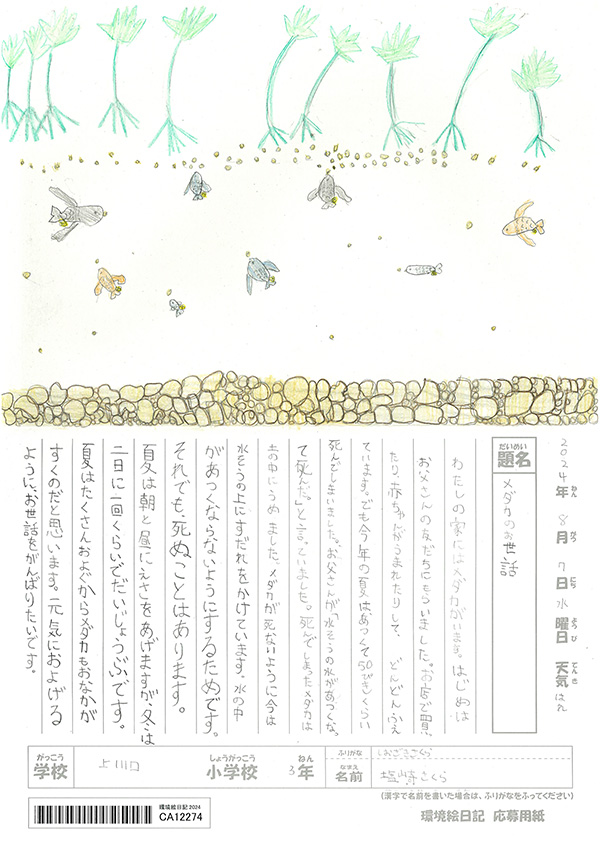 2024年 8月 7日 水曜日 天気 はれ
ねん がつ にち ようび てんき
だいめい
題名
メダカのお世話
わたしの家にはメダカがいます。はじめは
お父さんの友だちにもらいました。お店で買っ
たり、赤ちゃんがうまれたりして、どんどんふえ
ています。でも今年の夏はあつくて50ぴきくらい
死んでしまいました。お父さんが「水そうの水があつくな
て死んだ。」と言っていました。死んでしまったメダカは
土の中にうめました。メダカが死なないように今は
水そうの上にすだれをかけています。水の中
があつくならないようにするためです。
それでも、死ぬことはあります。
夏は朝と昼にえさをあげますが、冬は
二日に一回くらいでだいじょうぶです。
夏はたくさんおよぐからメダカもおなかが
すくのだと思います。元気におよげる
ように、お世話をがんばりたいです。
がっこう
学校
上川口
しょうがっこう
小学校
ねん
3年
ふりがな
しおざきさくら
なまえ
名前
塩崎さくら
(漢字で名前を書いた場合は、ふりがなをふってください)
環境絵日記 2024
CA12274
環境絵日記 応募用紙